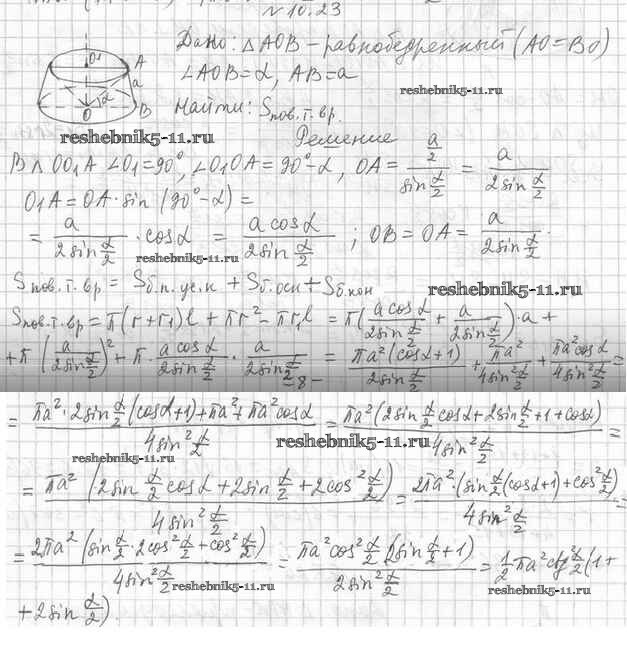 № 10.23
Дано: △AOB – равнобедренный (AO=BO)
∠AOB=α, AB=a
reshebnik5-11.ru
Найти: Sпов.т.вр.
O₁
A
a
α
O
B
reshebnik5-11.ru
Решение
В △ OO₁A ∠O₁=90°, ∠O₁OA=90°-α, OA = (a/2)/(sin α/2) = a/(2sin α/2)
O₁A = OA·sin (90°-α) =
= a/(2sin α/2) · cosα = (a cosα)/(2sin α/2) ; OB = OA = a/(2sin α/2).
reshebnik5-11.ru
Sпов.т.вр = Sб.п.ус.к + Sб.осн + Sб.кон
reshebnik5-11.ru
Sпов.т.вр = π(r+r₁)l + πr² - πr₁l = π((a cosα)/(2sin α/2) + a/(2sin α/2))·a +
+ π (a/(2sin α/2))² + π · (a cosα)/(2sin α/2) · a/(2sin α/2) = (πa²(cosα+1))/(2sin α/2) + πa²/(4sin² α/2) + (πa²cosα)/(4sin² α/2) =
-8-
= (πa²·2sin α/2 (cosα+1)+πa²+πa²cosα)/(4sin² α/2) = (πa²(2sin α/2 cosα+2sin α/2+1+cosα))/(4sin² α/2) =
reshebnik5-11.ru
reshebnik5-11.ru
= (πa² (2sin α/2 cosα + 2sin α/2 + 2cos² α/2))/(4sin² α/2) = (2πa²·(sin α/2 (cosα+1)+cos² α/2))/(4sin² α/2) =
= (2πa² (sin α/2 · 2cos² α/2 + cos² α/2))/(4sin² α/2) = (πa²cos² α/2 (2sin α/2 + 1))/(2sin² α/2) = 1/2 πa²ctg² α/2 (1+
reshebnik5-11.ru
reshebnik5-11.ru
+ 2sin α/2).